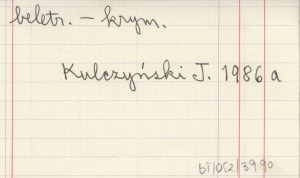 beletr. – krym.
Kulczyński J. 1986 a
bī/052/3990